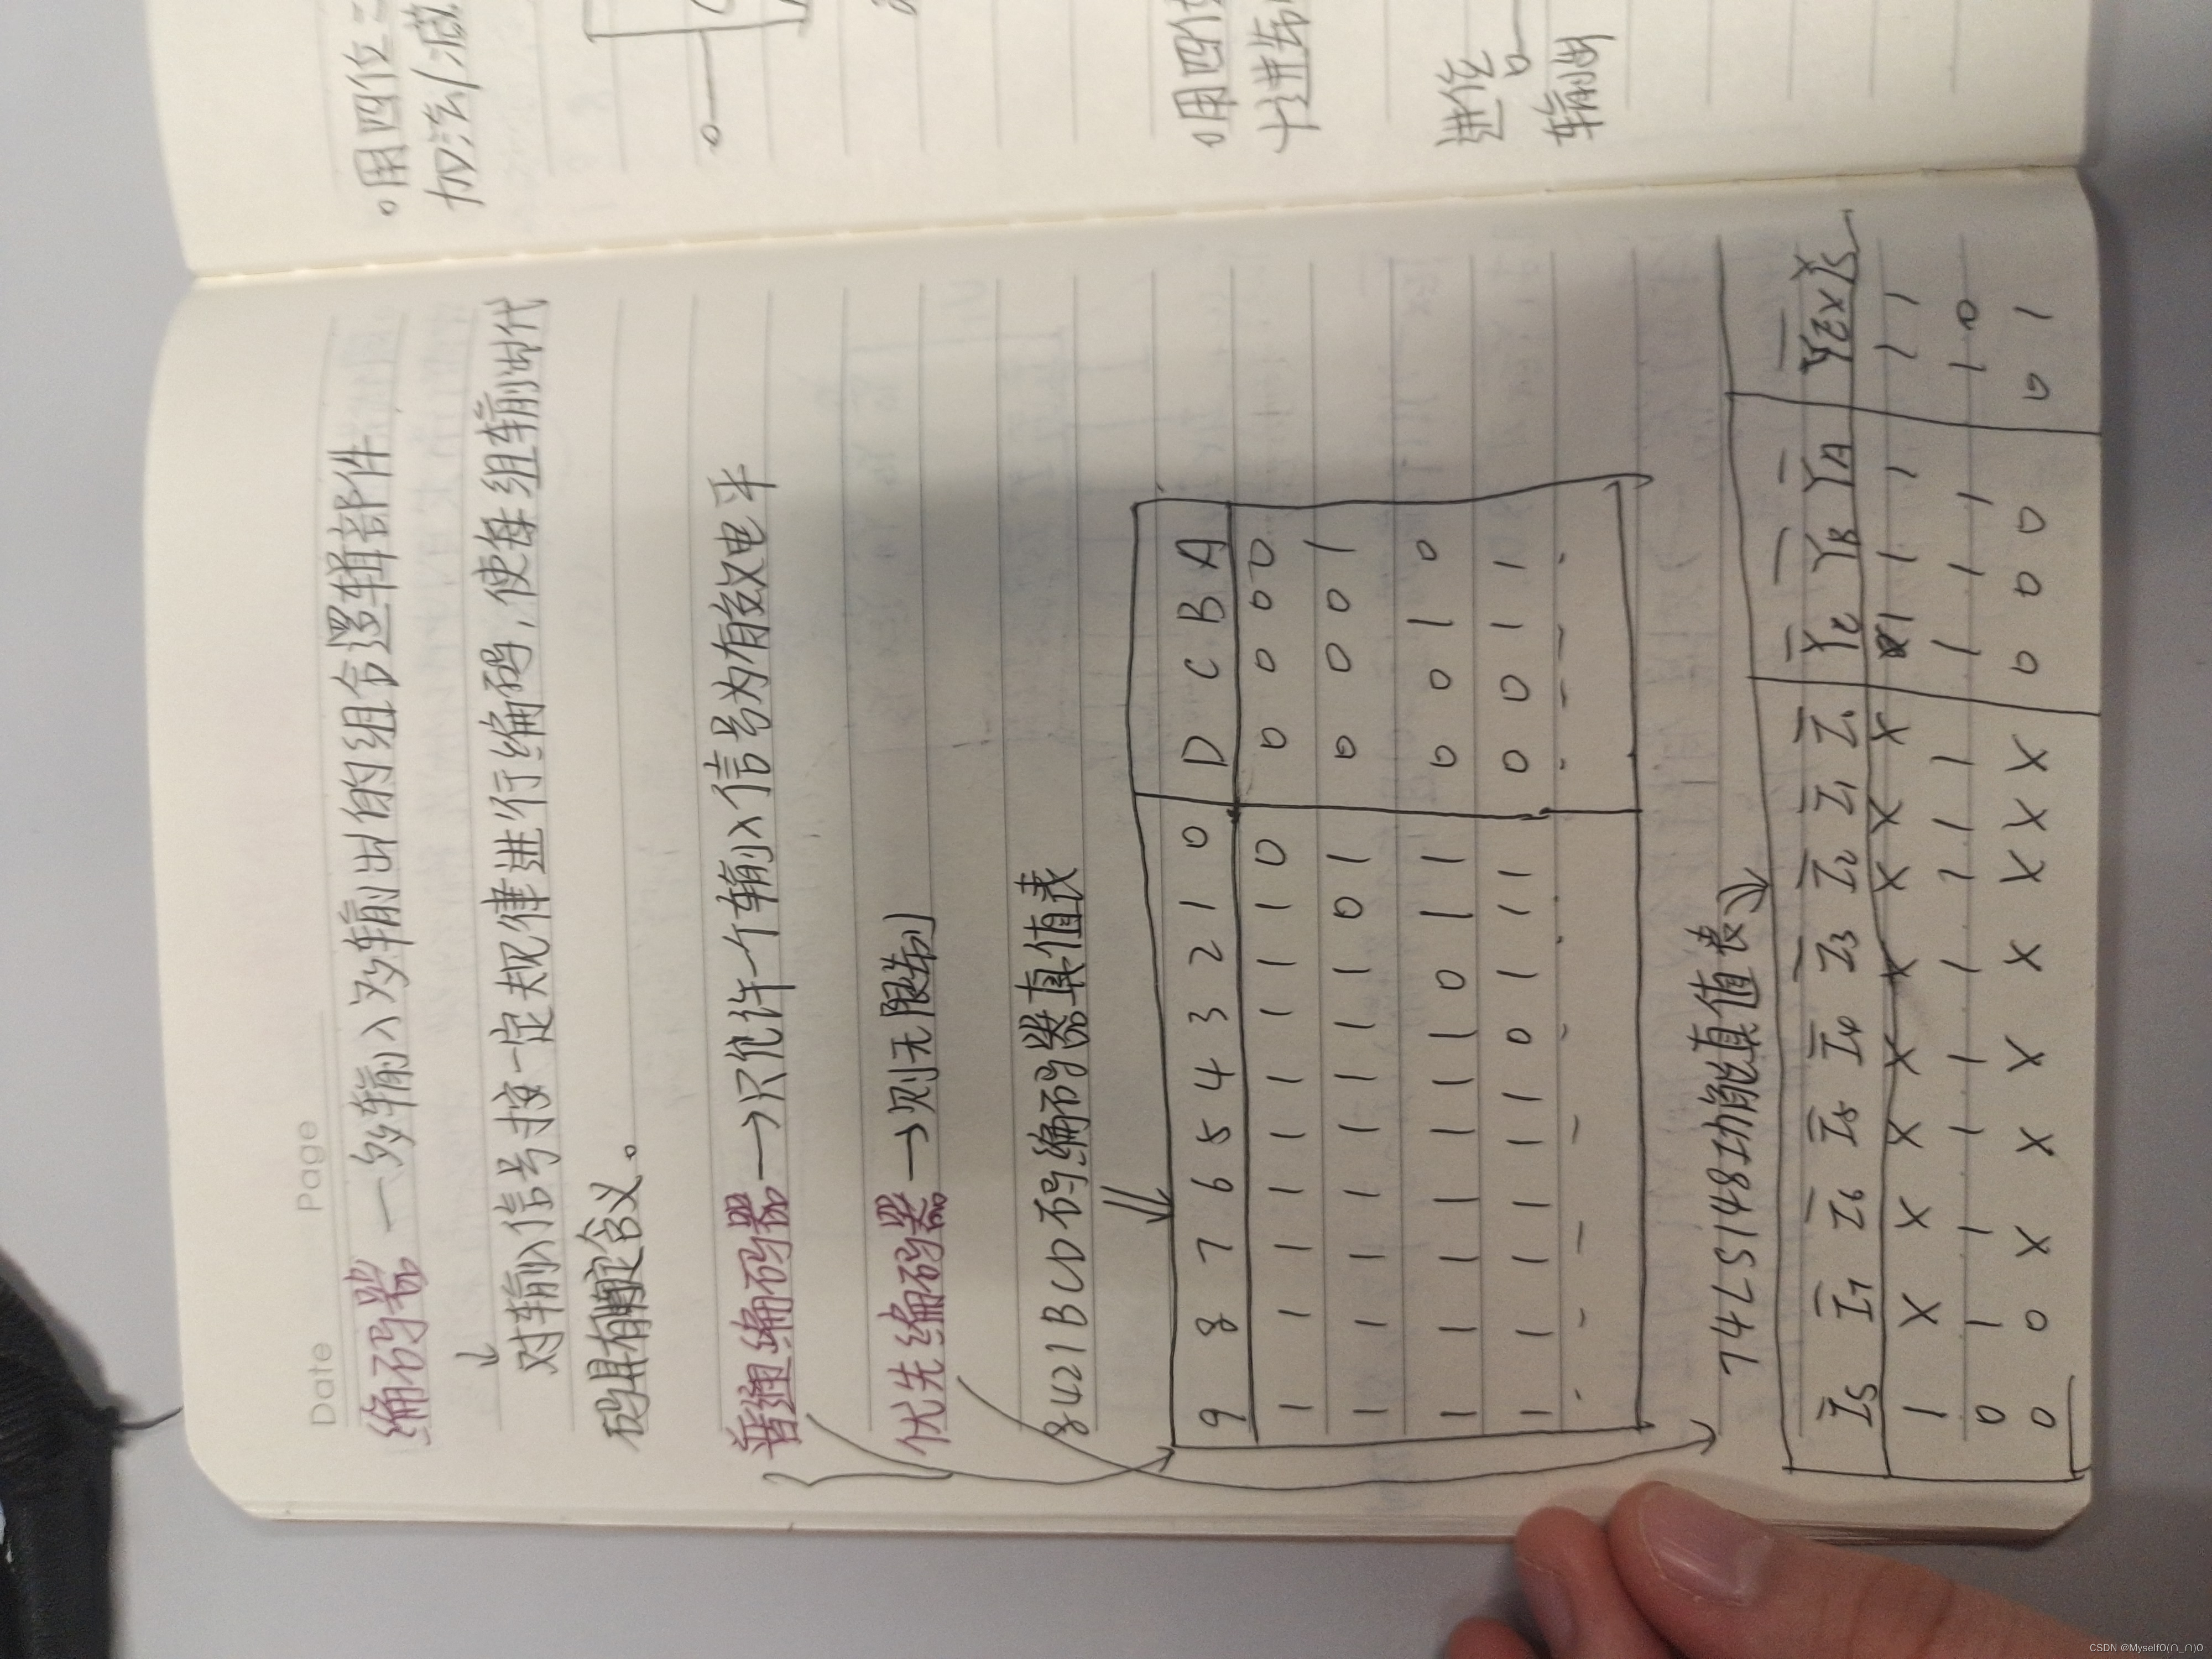 Date Page
编码器 — 多输入多输出的组合逻辑部件
↓
对输入信号按一定规律进行编码,使每组输出代
码具有确定含义。
普通编码器→只允许一个输入信号为有效电平
优先编码器→则无限制
8421BCD码编码器真值表
9 8 7 6 5 4 3 2 1 0 D C B A
1 1 1 1 1 1 1 1 1 0 0 0 0 0
1 1 1 1 1 1 1 1 0 1 0 0 0 1
1 1 1 1 1 1 1 0 1 1 0 0 1 0
1 1 1 1 1 1 0 1 1 1 0 0 1 1
74LS148功能真值表
I̅S I̅7 I̅6 I̅5 I̅4 I̅3 I̅2 I̅1 Y̅C Y̅B Y̅A Y̅EX
1 X X X X X X X X 1 1 1 1 1
0 1 1 1 1 1 1 1 1 1 1 1 1 0
0 0 X X X X X X X 0 0 0 0 1
用四位
加法/减
用四位
十进制
进位
输出
CSDN @MyselfO(∩_∩)O